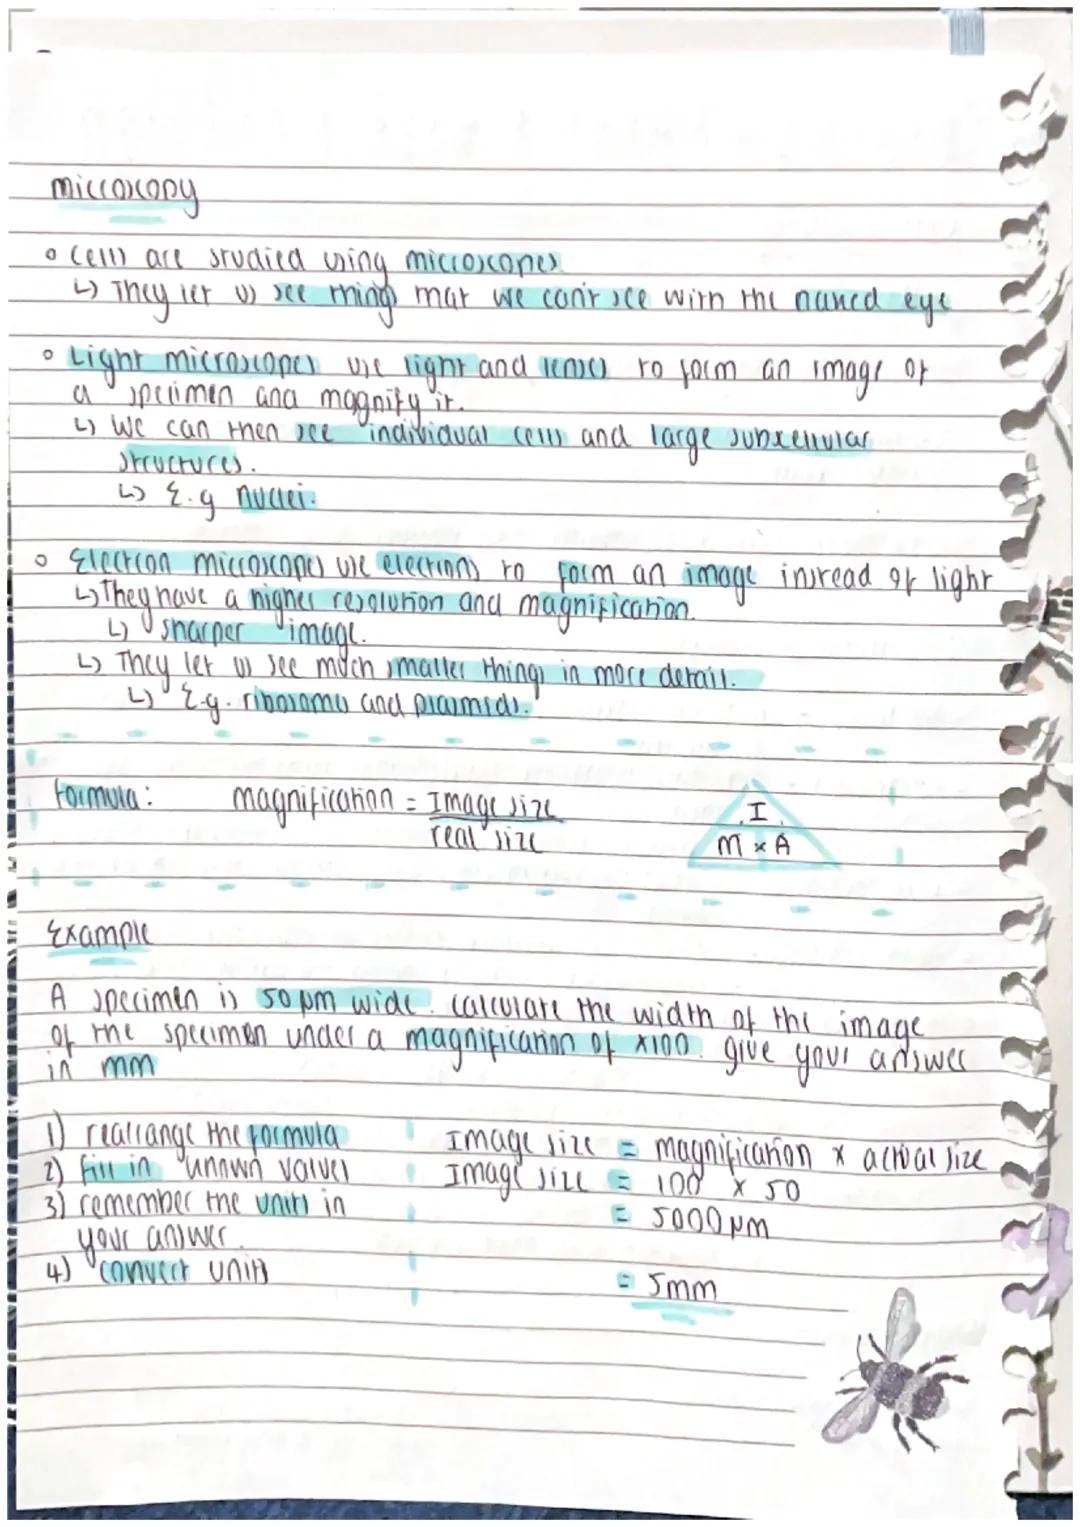 microscopy
o Cells are studied using microscopes
↳ They let us see things that we can't see with the naked eye
o Light microscopes use light and lenses to form an image of
a specimen and magnify it.
↳ We can then see individual cells and large subcellular
structures.
↳ E.g nuclei.
o Electron microscopes use electrons to form an image instead of light
↳ They have a higher resolution and magnification.
↳ sharper image.
↳ They let us see much smaller things in more detail.
↳ E.g. ribosomes and plasmids.
formula: magnification = Image size
real size
I
M x A
Example
A specimen is 50 µm wide. calculate the width of the image
of the specimen under a magnification of x100. give your answer
in mm
1) rearrange the formula Image size = magnification x actual size
2) fill in unknwn values Image size = 100 x 50
3) remember the units in = 5000µm
your answer.
4) convert units = 5mm